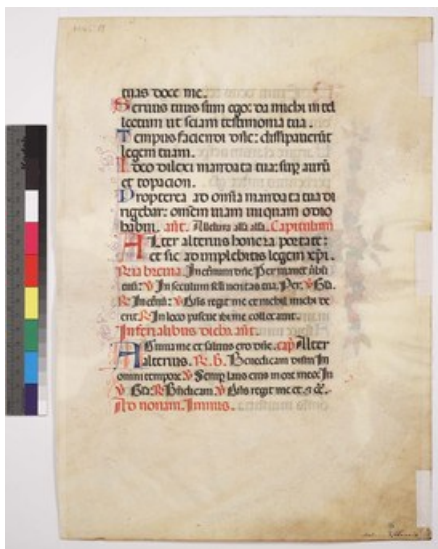 tuas doce me.
Servus tuus sum ego: da michi intel
lectum ut sciam testimonia tua.
Tempus faciendi dñe: dissipaverūt
legem tuam.
Ideo dilexi mandata tua: sup aurū
et topacion.
Propterea ad omīa mandata tua di
rigebar: omēm viam iniquam odio
habui. añt. Alleluia alla alla. Capitulum
Alter alterius honera portate:
et sic adimplebitis legem xp̄i.
In eñum dñe Permanet
In seculum seculi veritas tua. Per.
dñs regit me et nichil michi de
erit In loco pascue ibi me collocavit.
In ferialibus dieb. añt.
et salvus ero dñe. cap̄ Alter
alterius. R. b. Benedicam dñm In
omni tempore Semp laus eius in ore meo In
Benedicam. dñs regit me et
Ad nonam. Imnus.